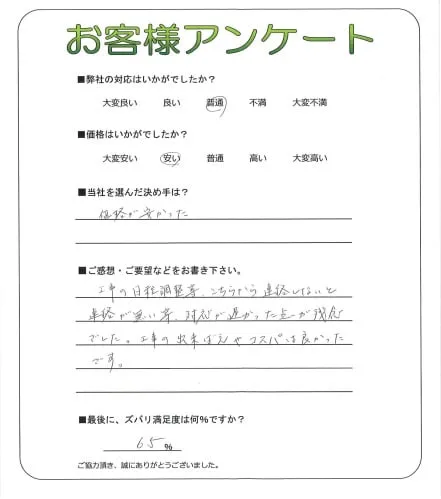 お客様アンケート
■弊社の対応はいかがでしたか？
大変良い 良い 普通 不満 大変不満
■価格はいかがでしたか？
大変安い 安い 普通 高い 大変高い
■当社を選んだ決め手は？
価格が安かった
■ご感想・ご要望などをお書き下さい。
工事の日程調整等、こちらから連絡しないと
連絡が無い等、対応が遅かった点が残念
でした。工事の出来ばえやコスパは良かった
です。
■最後に、ズバリ満足度は何％ですか？
65％
ご協力頂き、誠にありがとうございました。